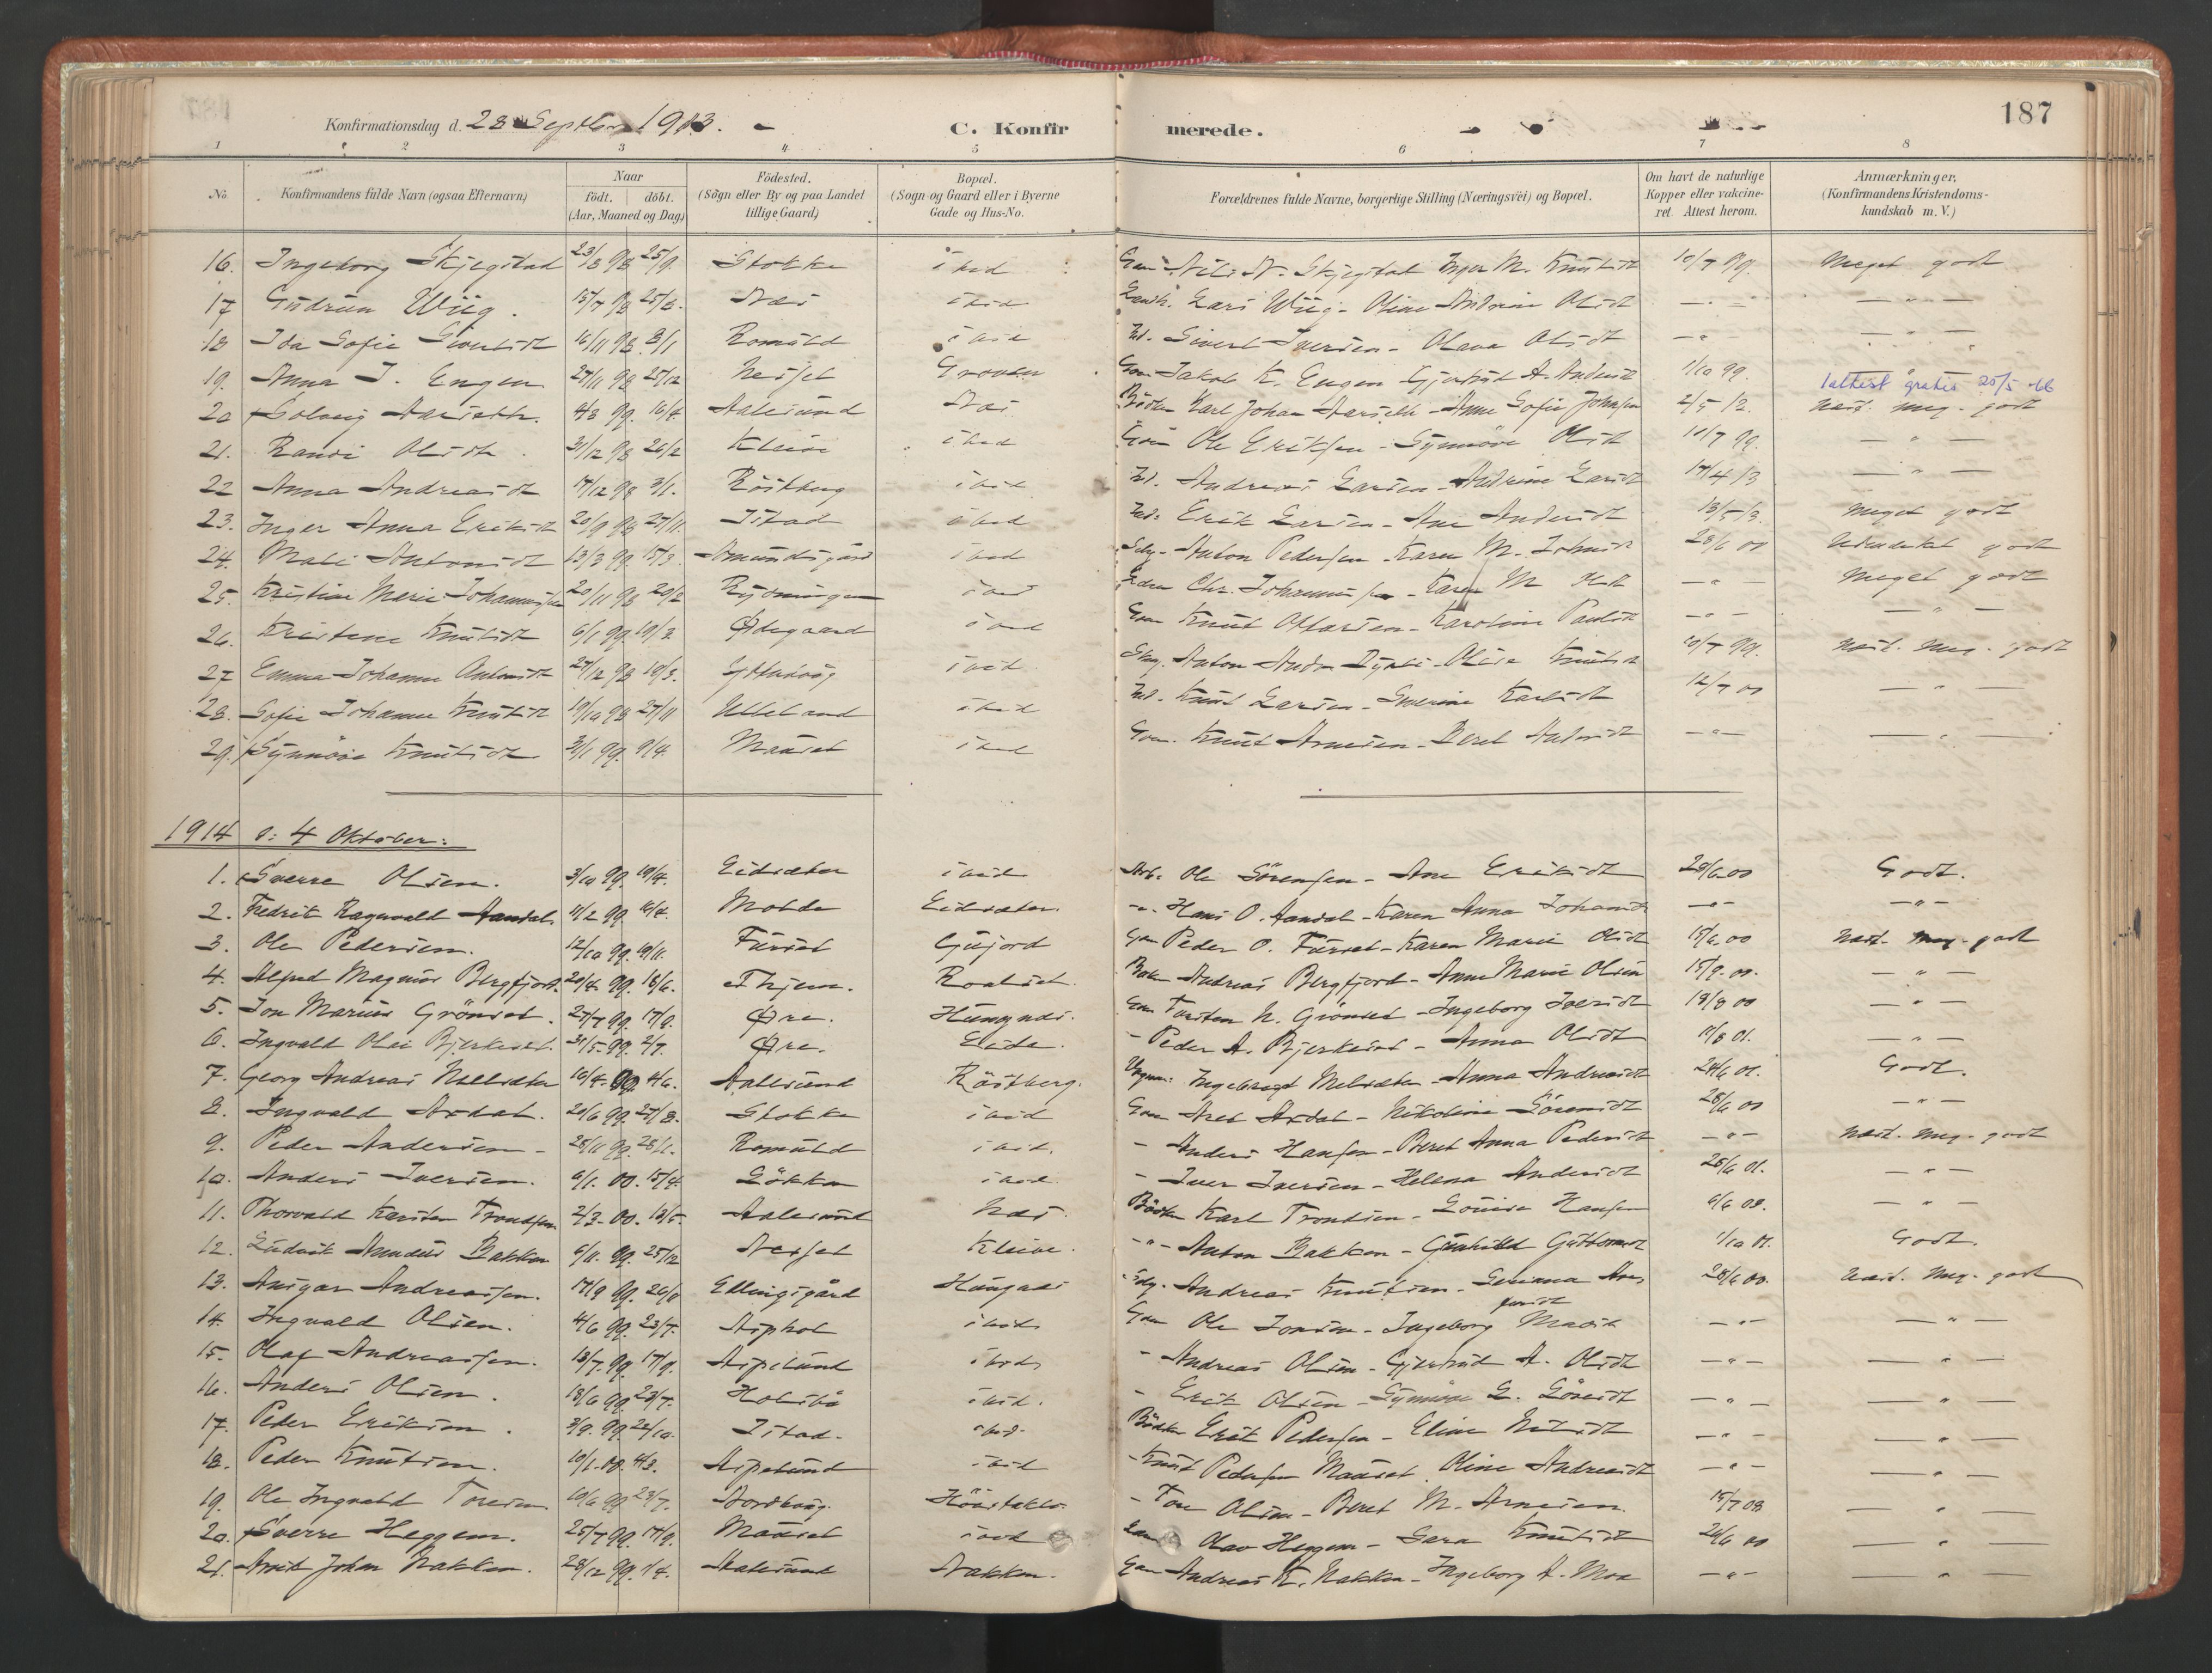 187
Konfirmationsdag d. 28 Septber 1913.
C. Konfirmerede.
1 2 3 4 5 6 7 8
No. Konfirmandens fulde Navn (ogsaa Efternavn) Naar født. døbt. (Aar, Maaned og Dag) Födested. (Sogn eller By og paa Landet tillige Gaard) Bopæl. (Sogn og Gaard eller i Byerne Gade og Hus-No. Forældrenes fulde Navne, borgerlige Stilling (Næringsvei) og Bopæl. Om havt de naturlige Kopper eller vakcineret. Attest herom. Anmærkninger, (Konfirmandens Kristendomskundskab m. V.)
16. Ingeborg Skjegstad 23/8 98 25/9. Stokke ibid Nils N. Skjegstad Inger M. Knutsdt 10/7 99. Meget godt
17 Gudrun Wiig. 15/7 98 Næs ibid Lars Wiig - Oline Andrine Olsdt — " —
18 Ida Sofie Sivertsdt 16/11 98. 8/1 Romuld ibid Ind. Sivert Iversen - Olava Olsdt — " —
19. Anna J. Engen 27/11 98 25/12 Nesjet Groven Gm Jakob K. Engen Gjertrud A. Andersdt 1/10 99. 1 attest gratis 25/5 -66
20 Solveig Aarseth. 4/3 99. 16/4 Aalesund Næs Bödker Karl Johan Aarseth - Anne Sofie Johnsen 2/5 12. Næst. meg. godt
21. Randi Olsdt. 31/12 98 26/2 Kleive ibid Gm Ole Eriksen - Synnöve Olsdt 10/7 99. — " —
22 Anna Andreasdt 17/12 98 8/1. Röstberg ibid Ind. Andreas Larsen - Andrine Larsdt 17/4 13 — " —
23. Inger Anna Eriksdt 20/9 98 27/11. Istad ibid Ind. Erik Larsen - Ane Andersdt 13/5 13. Meget godt
24. Mali Antonsdt 13/3 99. Amundsgård ibid Anton Pedersen - Karen M. Johnsdt 28/6 00 Udmerket godt
25. Kristine Marie Johannessen 20/11 98 20/2 Rydningen ibid Chr. Johannessen - Karen M Olsdt — " — Meget godt
26. Kristine Knutsdt 6/1 99. 19/2 Ødegaard ibid Gm Knut Ottersen - Karoline Paulsdt — " — — " —
27 Emma Johanne Antonsdt 27/12 98 19/3. ibid. Anton Andr. - Olise Knutsdt 10/7 99. Næst. meg. godt
28. Sofie Johanne Knutsdt 19/10 98 27/11 Ulleland ibid Ind. Knut Larsen - Severine Karlsdt 12/7 00 — " —
29. Synnöve Knutsdt 31/1 99. 9/4. Maaset ibid Gm. Knut Arnesen - Beret Andersdt — " — — " —
1914 d: 4 Oktober:
1. Sverre Olsen. 3/10 99. 19/4. Eidsæter ibid Arb. Ole Sörensen - Ane Eriksdt 28/6 00 Godt.
2. Fredrik Ragnvald Aandal. 11/2 99. 16/4. Molde Eidsæter. - " - Hans O. Aandal - Karen Anna Johansdt — " — — " —
3. Ole Pedersen. 12/10 99. 19/11. Furset Gujord Gm Peder O. Furset - Karen Marie Olsdt 15/6. 00 Næst. meg. godt
4. Alfred Magnus Bergfjord. 20/4. 99. 18/6. Thjem. Roaldset. Andreas Bergfjord - Anne Marie Olsen 15/9. 00. — " —
5. Jon Marius Grönset. 27/7 99. 17/9. Øre. Hungnes. Gm Torsten N. Grönset - Ingeborg Iversdt 18/8 00 — " —
6. Ingvald Olai Bjerkeset. 31/5. 99. 2/7. Øre. Eide. - Peder A. Bjerkeset - Anna Olsdt 11/8 01. — " —
7. Georg Andreas Melsæter 16/4. 99. 4/6. Aalesund Röstberg. Ingebrigt Melsæter - Anna Andreasdt 24/6 01. Godt.
8. Ingvald Ardal. 20/6 99. 27/8. Stokke ibid Gm Axel Ardal - Nikoline Sörensdt 28/6 00 — " —
9. Peder Andersen - 28/11 99. 28/1. Romuld ibid. - Anders Hansen - Beret Anna Pedersdt — " — Næst. meg. godt
10. Anders Iversen. 6/1. 00. 15/4. Lökka ibid. - Iver Iversen - Helena Andersdt 28/6 01. — " —
11. Thorvald Karsten Trondsen 2/3. 00. 13/5. Aalesund Næs. Bödker Karl Trondsen - Louise Hansen 6/6 03. — " —
12. Ludvik Amdeus Bakken 6/11. 99. 25/12 Nesjet Kleive. - " - Anton Bakken - Gunhild Guttormsdt 1/10 01. Godt.
13. Ansgar Andreassen. 17/9 99. Ellingsgård Hungnes Andreas Knutsen - Gurianna 28/6 00. Næst. meg. godt
14. Ingvald Olsen. 4/6 99. 23/7. Asphol ibid Gm Ole Jonsen - Ingeborg — " — — " —
15. Olaf Andreassen. 13/7. 99. 17/9. Aspelund ibid. - Andreas Olsen - Gjertrud A. Olsdt — " — — " —
16. Anders Olsen. 18/6 99. 23/7. Holsbö ibid. - Erik Olsen - Synnöve — " — — " —
17. Peder Eriksen. 3/9. 99. 22/10. Istad. ibid. Bödker Erik Pedersen - Eline Nilsdt — " — — " —
18. Peder Knutsen. 10/1. 00. 4/3. Aspelund ibid - Knut Pedersen Maaset. Oline Andreasdt — " — — " —
19. Ole Ingvald Toresen. 10/6 99 23/7. Nordhaug. - Tore Olsen - Beret M. Arnesen. 15/7 03 — " —
20. Sverre Heggem. 25/7 99. 17/9. Maaset ibid Olav Heggem - Sara Knutsdt 26/6 00 — " —
21. Arnt Johan Nakken. 28/12 99. 1/4. Aalesund Nakken. Gm Andreas K. Nakken - Ingeborg A. Moa — " — — " —